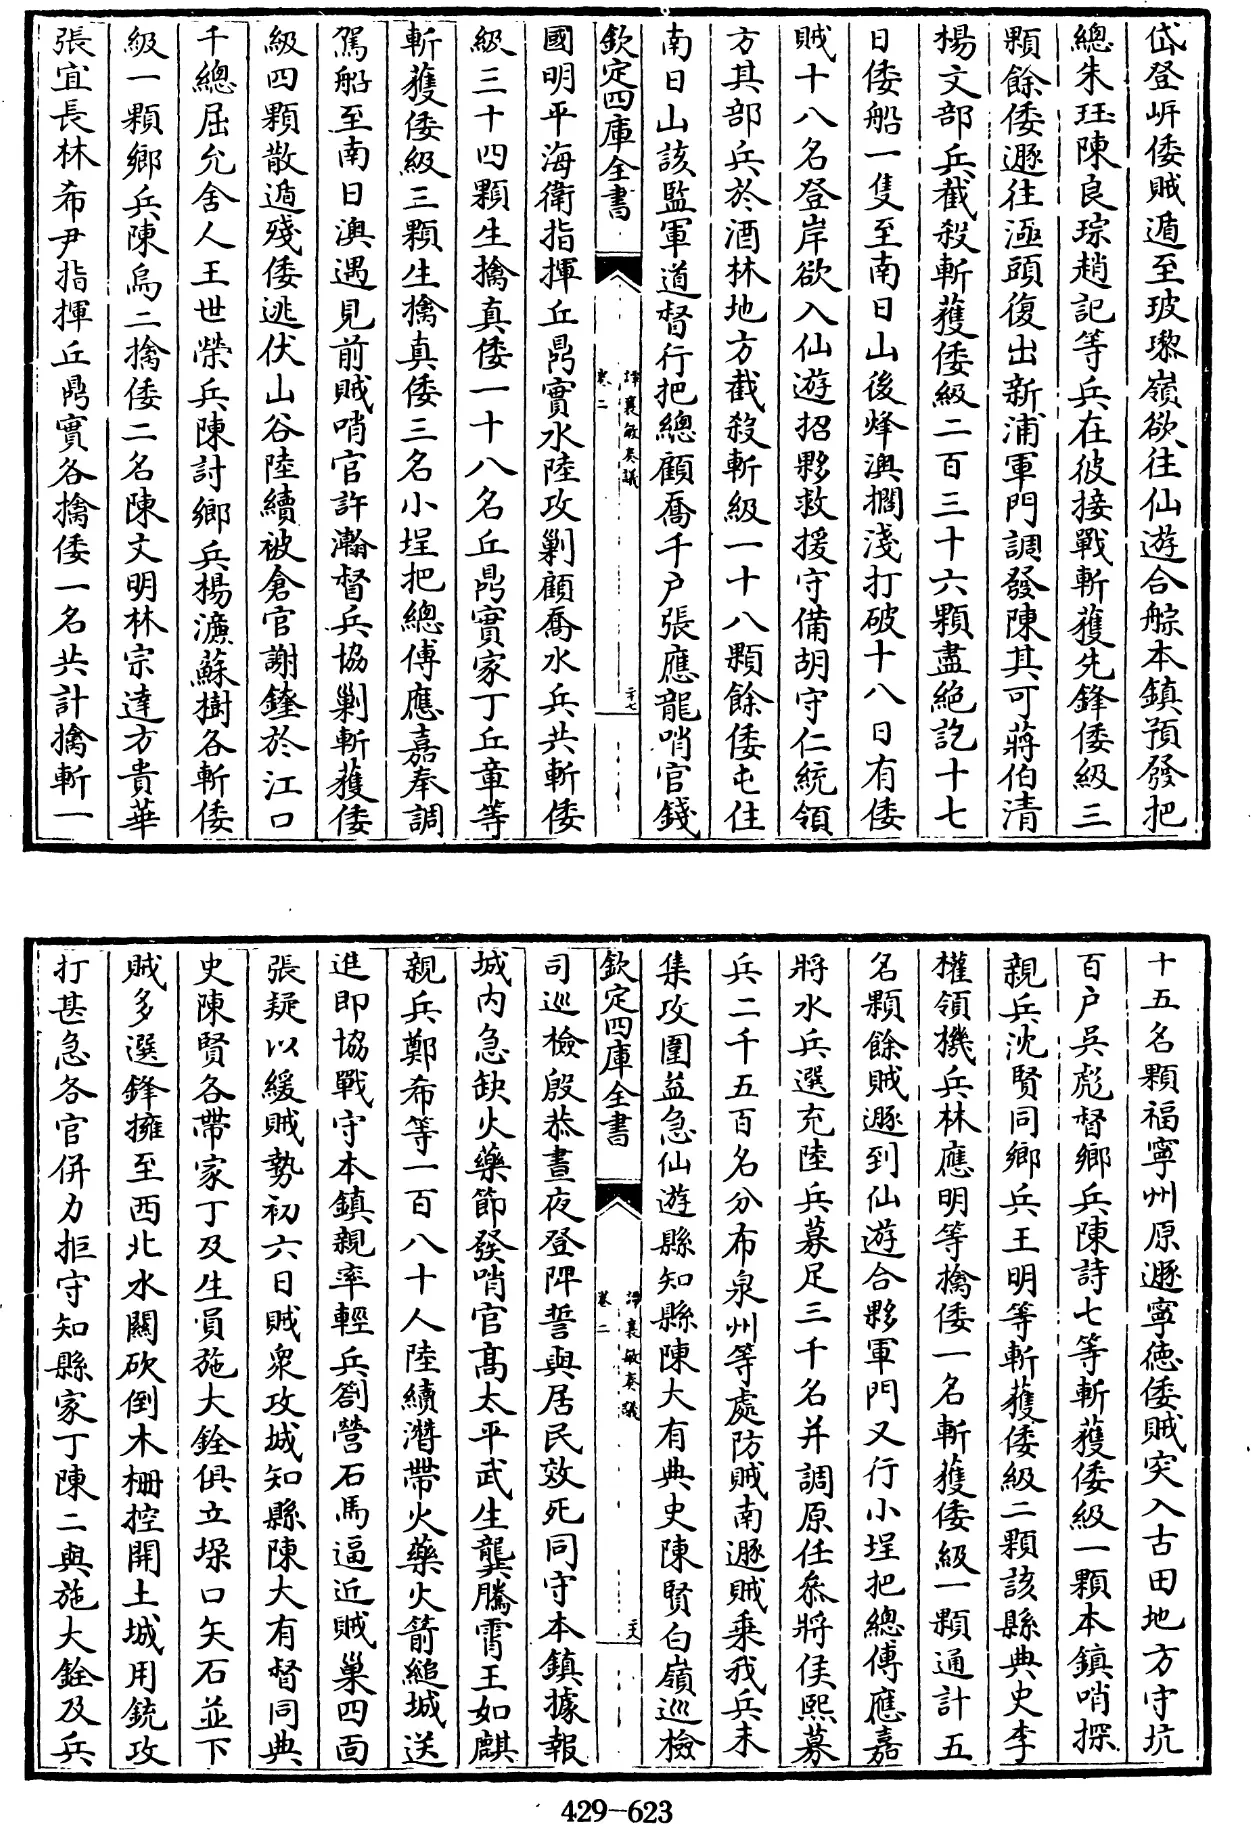 岱登㟁倭賊遁至玻瓈嶺欲往仙遊合䑸本鎮預發把
總朱珏陳良琮趙記等兵在彼接戰斬獲先鋒倭級三
顆餘倭遯往涵頭復出新浦軍門調發陳其可蔣伯清
楊文部兵截殺斬獲倭級二百三十六顆盡絶訖十七
日倭船一隻至南日山後烽澳擱淺打破十八日有倭
賊十八名登岸欲入仙遊招夥救援守備胡守仁統領
方其部兵於酒林地方截殺斬級一十八顆餘倭屯住
南日山該監軍道督行把總顧喬千户張應龍哨官錢
欽定四庫全書
譚襄敏奏議
卷二
二十七
國明平海衛指揮丘鼎實水陸攻剿顧喬水兵共斬倭
級三十四顆生擒真倭一十八名丘鼎實家丁丘章等
斬獲倭級三顆生擒真倭三名小埕把總傅應嘉奉調
駕船至南日澳遇見前賊哨官許瀚督兵協剿斬獲倭
級四顆散遁殘倭逃伏山谷陸續被倉官謝鏜於江口
千總屈允舍人王世榮兵陳討鄉兵楊濂蘇樹各斬倭
級一顆鄉兵陳烏二擒倭二名陳文明林宗達方貴華
張宜長林希尹指揮丘鼎實各擒倭一名共計擒斬一
十五名顆福寧州原遯寧徳倭賊突入古田地方守坑
百户吳彪督鄉兵陳詩七等斬獲倭級一顆本鎮哨探
親兵沈賢同鄉兵王明等斬獲倭級二顆該縣典史李
權領機兵林應明等擒倭一名斬獲倭級一顆通計五
名顆餘賊遯到仙遊合夥軍門又行小埕把總傅應嘉
將水兵選充陸兵募足三千名并調原任叅將侯熙募
兵二千五百名分布泉州等處防賊南遯賊乘我兵未
集攻圍益急仙遊縣知縣陳大有典史陳賢白嶺巡檢
欽定四庫全書
譚襄敏奏議
卷二
二十八
司巡檢殷恭晝夜登陴誓與居民效死同守本鎮據報
城内急缺火藥節發哨官髙太平武生龔騰霄王如麒
親兵鄭希等一百八十人陸續潛帶火藥火箭縋城送
進即協戰守本鎮親率輕兵劄營石馬逼近賊巢四面
張疑以緩賊勢初六日賊衆攻城知縣陳大有督同典
史陳賢各帶家丁及生員施大銓俱立垜口矢石並下
賊多選鋒擁至西北水關砍倒木柵控開土城用銃攻
打甚急各官併力拒守知縣家丁陳二與施大銓及兵
429-623